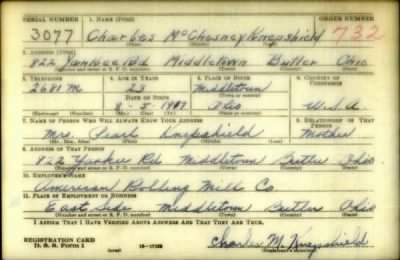 SERIAL NUMBER 1. NAME (Print) ORDER NUMBER
3077 Charles McChesney Knepshield 732
(First) (Middle) (Last)
2. ADDRESS (Print)
822 Yankee Rd Middletown Butler Ohio
(Number and street or R. F. D. number) (Town) (County) (State)
3. TELEPHONE 4. AGE IN YEARS 5. PLACE OF BIRTH 6. COUNTRY OF CITIZENSHIP
2681 M 23 Middletown
DATE OF BIRTH (Town or county)
8-5-1917 Ohio U.S.A.
(Exchange) (Number) (Mo.) (Day) (Yr.) (State or country)
7. NAME OF PERSON WHO WILL ALWAYS KNOW YOUR ADDRESS 8. RELATIONSHIP OF THAT PERSON
Mrs. Pearl Knepshield Mother
(Mr., Mrs., Miss) (First) (Middle) (Last)
9. ADDRESS OF THAT PERSON
822 Yankee Rd. Middletown Butler Ohio
(Number and street or R. F. D. number) (Town) (County) (State)
10. EMPLOYER'S NAME
American Rolling Mill Co.
11. PLACE OF EMPLOYMENT OR BUSINESS
East Side Middletown Butler Ohio
(Number and street or R. F. D. number) (Town) (County) (State)
I AFFIRM THAT I HAVE VERIFIED ABOVE ANSWERS AND THAT THEY ARE TRUE.
REGISTRATION CARD
D. S. S. Form 1 (over) Charles M. Knepshield
(Registrant's signature)